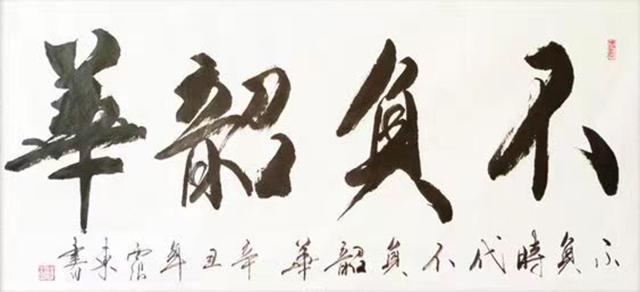 不負韶華
不負時代不負韶華 辛丑年 東書